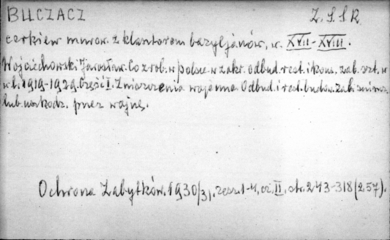 BUCZACZ Z.S.S.R.
cerkiew murow. z klasztorem bazyljanów, w. XVII - XVIII.
Wojciechowski Jarosław. Co zrob. w Polsce w zakr. odbud. rest. i kons. zab. szt. w
l. 1919-1929. Część I. Zniszczenia wojenne. Odbud. i rest. budow. zab. zniszcz.
lub uszkodz. przez wojnę.
Ochrona Zabytków. 1930/31. zesz. 1-4, cz. II, str. 243-318 (257).